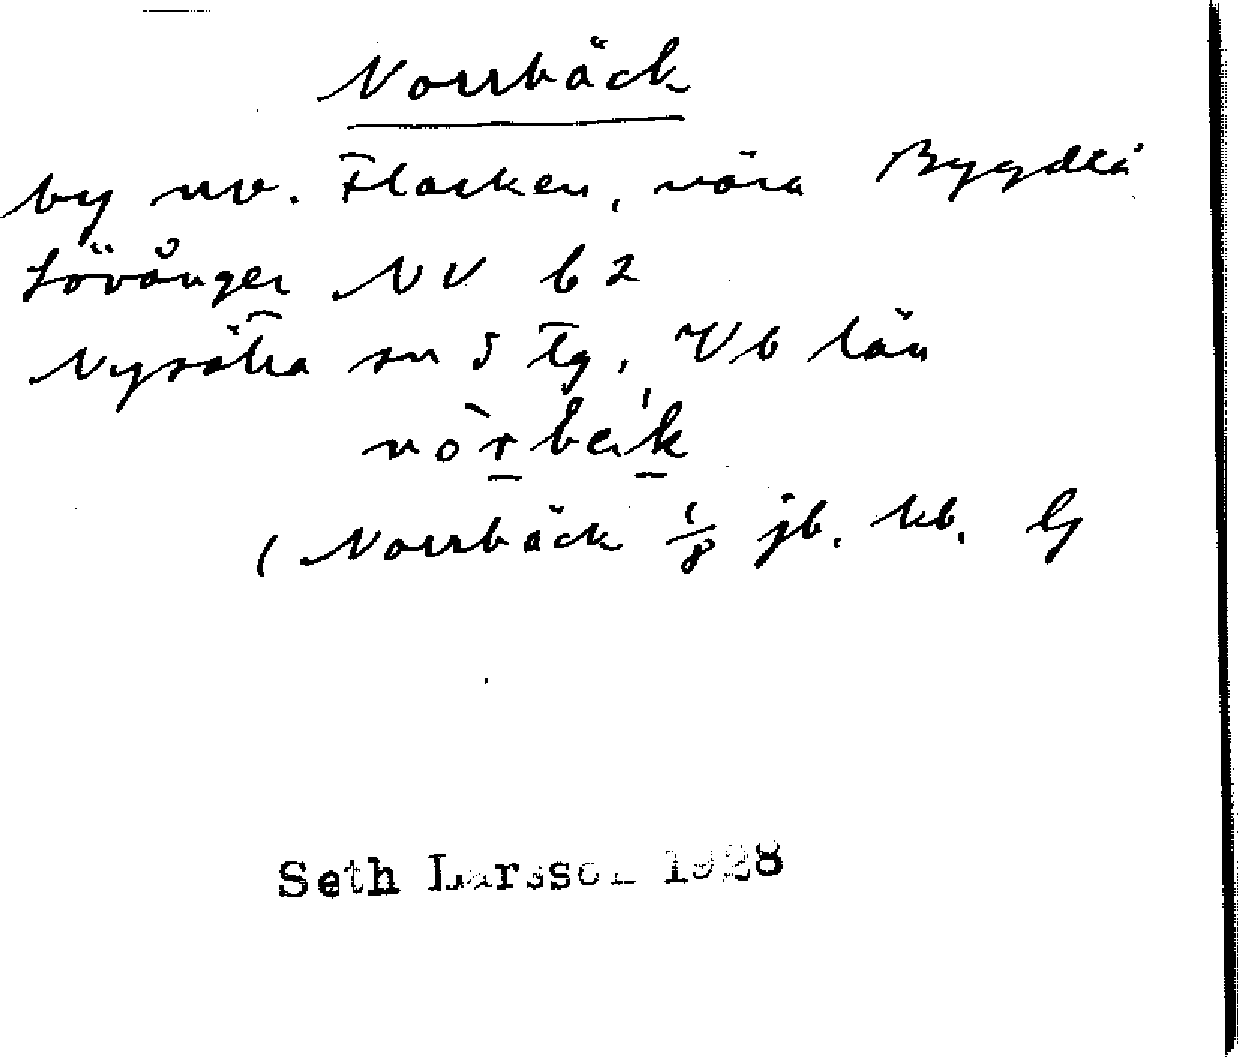 Norrbäck
by nv. Flarken, nära Bygdeå
Lövånger NV b 2
Nysätra sn S Tg, Vb län
(Norrbäck 1/8 jb. kb. G
Seth Larsson 1928